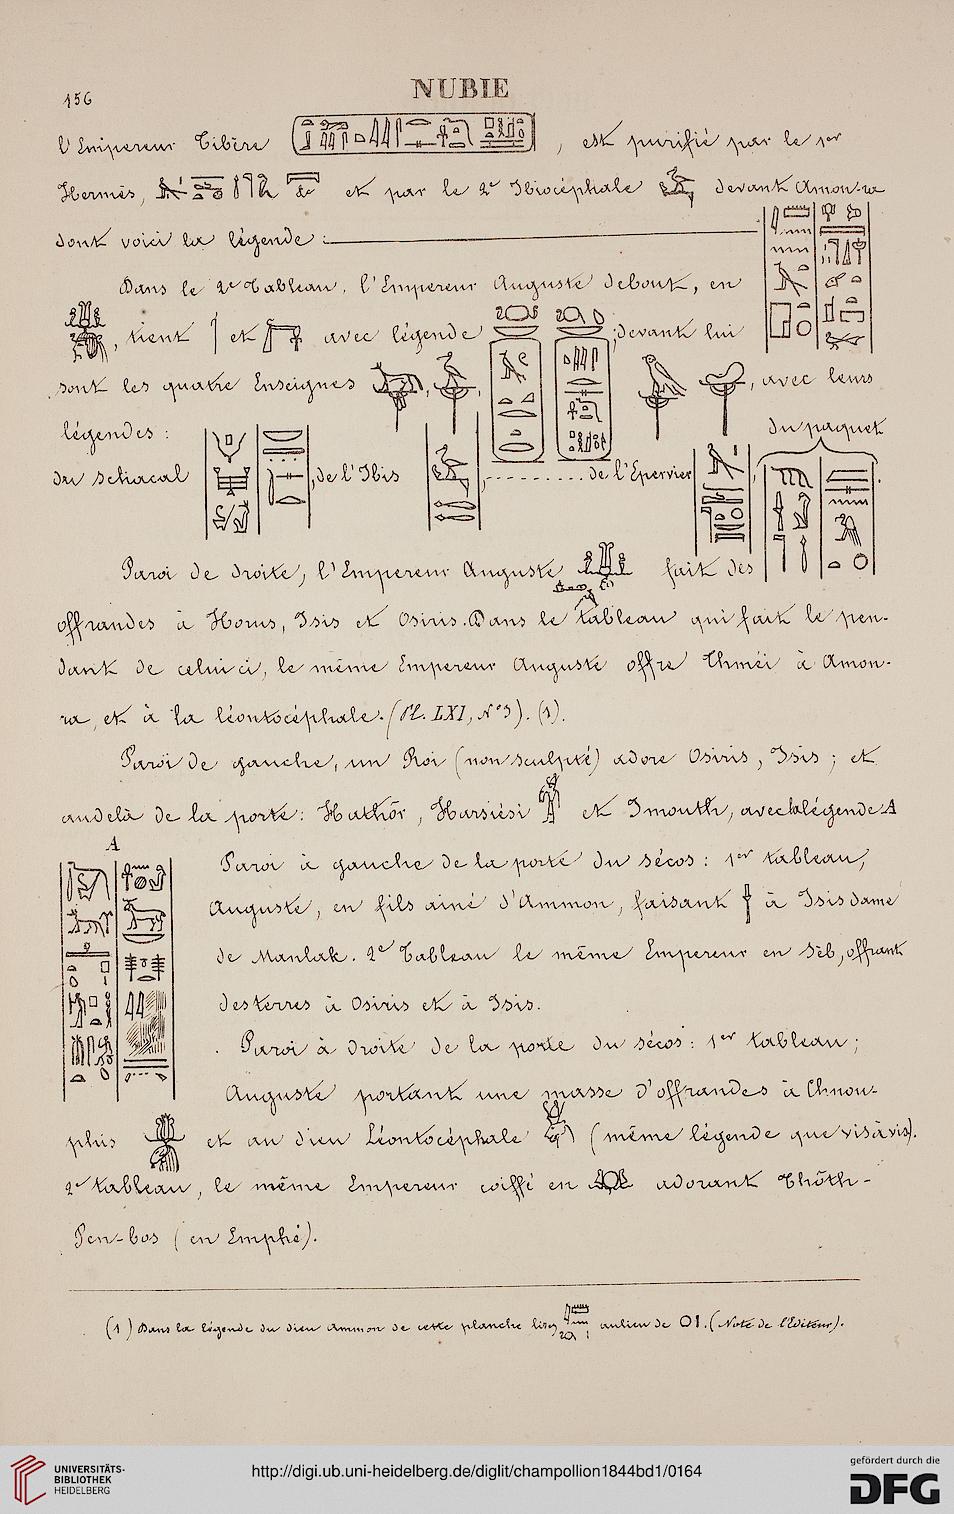 156
NUBIE
l'Empereur Tibère , est purifié par le 1er
Hermès, et par le 2e Ibiocéphale devant Amon-ra
dont voici la légende :
Dans le 2e Tableau, l'Empereur Auguste debout, en
, tient et avec légende ; devant lui
sont les quatre Enseignes , , , avec leurs
légendes :
du paquet
du schacal , de l'Ibis , . . . . . . . . . . de l'Epervier , .
Paroi de droite, l'Empereur Auguste fait des
offrandes à Horus, Isis et Osiris. Dans le tableau qui fait le pen-
dant de celui ci, le même Empereur Auguste offre Thméi à Amon-
ra, et à la léontocéphale. (Pl. LXI, No 3). (1).
Paroi de gauche, un Roi (non sculpté) adore Osiris, Isis ; et
audelà de la porte : Hathôr, Harsiési et Imouth, avec la légende A
A
Paroi à gauche de la porte du sécos : 1er tableau,
Auguste, en fils ainé d'Ammon, faisant à Isis dame
de Manlak. 2e Tableau le même Empereur en Sèb, offrant
des terres à Osiris et à Isis.
Paroi à droite de la porte du sécos : 1er tableau ;
Auguste portant une masse d'offrandes à Chnou-
phis et au dieu Léontocéphale (même légende que vis à vis).
2e tableau, le même Empereur coiffé en adorant Thôth-
Pen-bos (en Emphé).
(1) Dans la légende du dieu Ammon de cette planche lisez aulieu de (Note de l'Editeur).
UNIVERSITÄTS-
BIBLIOTHEK
HEIDELBERG
http://digi.ub.uni-heidelberg.de/diglit/champollion1844bd1/0164
gefördert durch die
DFG